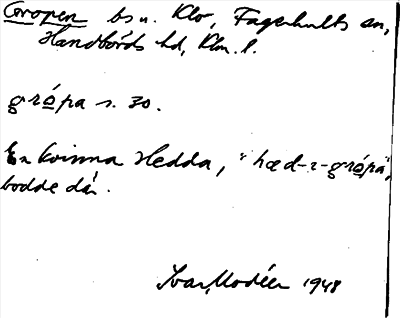 Gropen bs u. Klo, Fagerhults sn,
Handbörds hd, Klm. l.
grópa s. 30.
En kvinna Hedda, "hæd-ɪ-grópa",
bodde där.
Ivar Modéer 1948